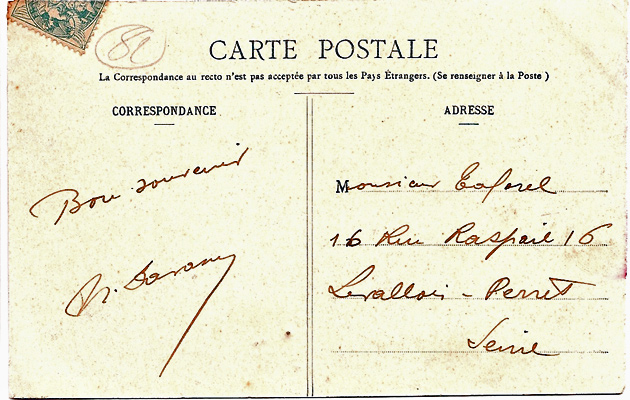 81
CARTE POSTALE
La Correspondance au recto n'est pas acceptée par tous les Pays Étrangers. (Se renseigner à la Poste)
CORRESPONDANCE
ADRESSE
Bon souvenir
Monsieur
16 Rue Raspail 16
Levallois-Perret
Seine